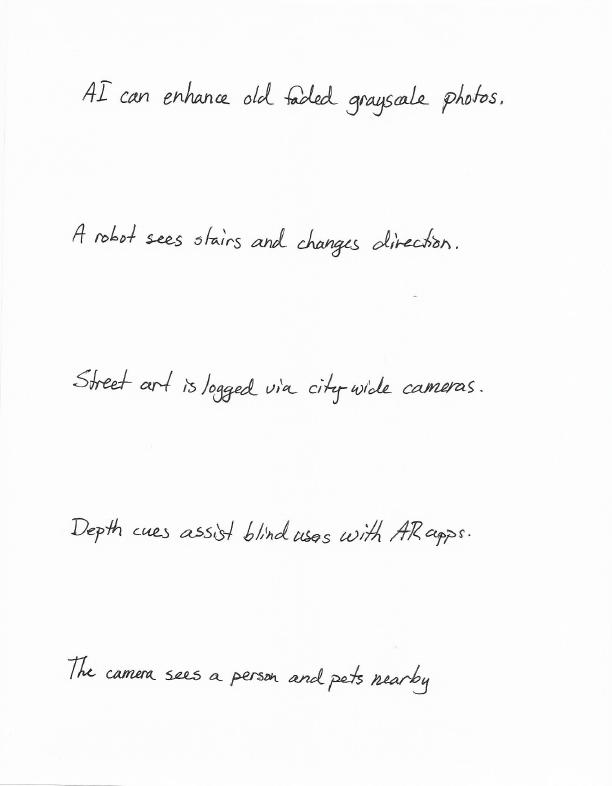 AI can enhance old faded grayscale photos.
A robot sees stairs and changes direction.
Street art is logged via city-wide cameras.
Depth cues assist blind uses with AR apps.
The camera sees a person and pets nearby